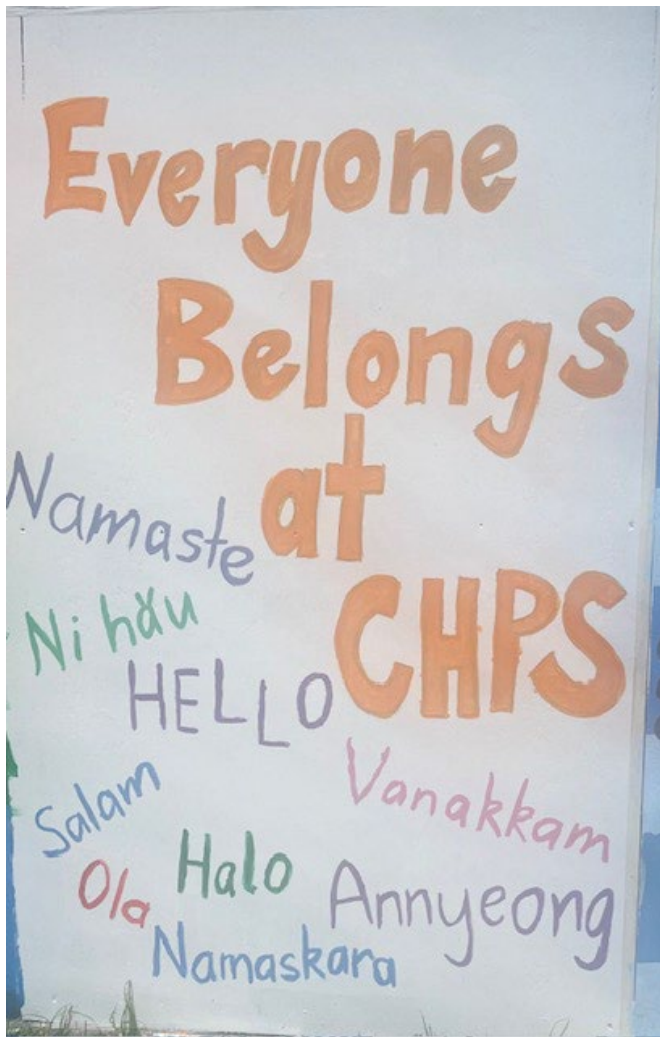 Everyone
Belongs
at
CHPS
Namaste
Ni hău
HELLO
Vanakkam
Salam
Halo
Ola
Annyeong
Namaskara